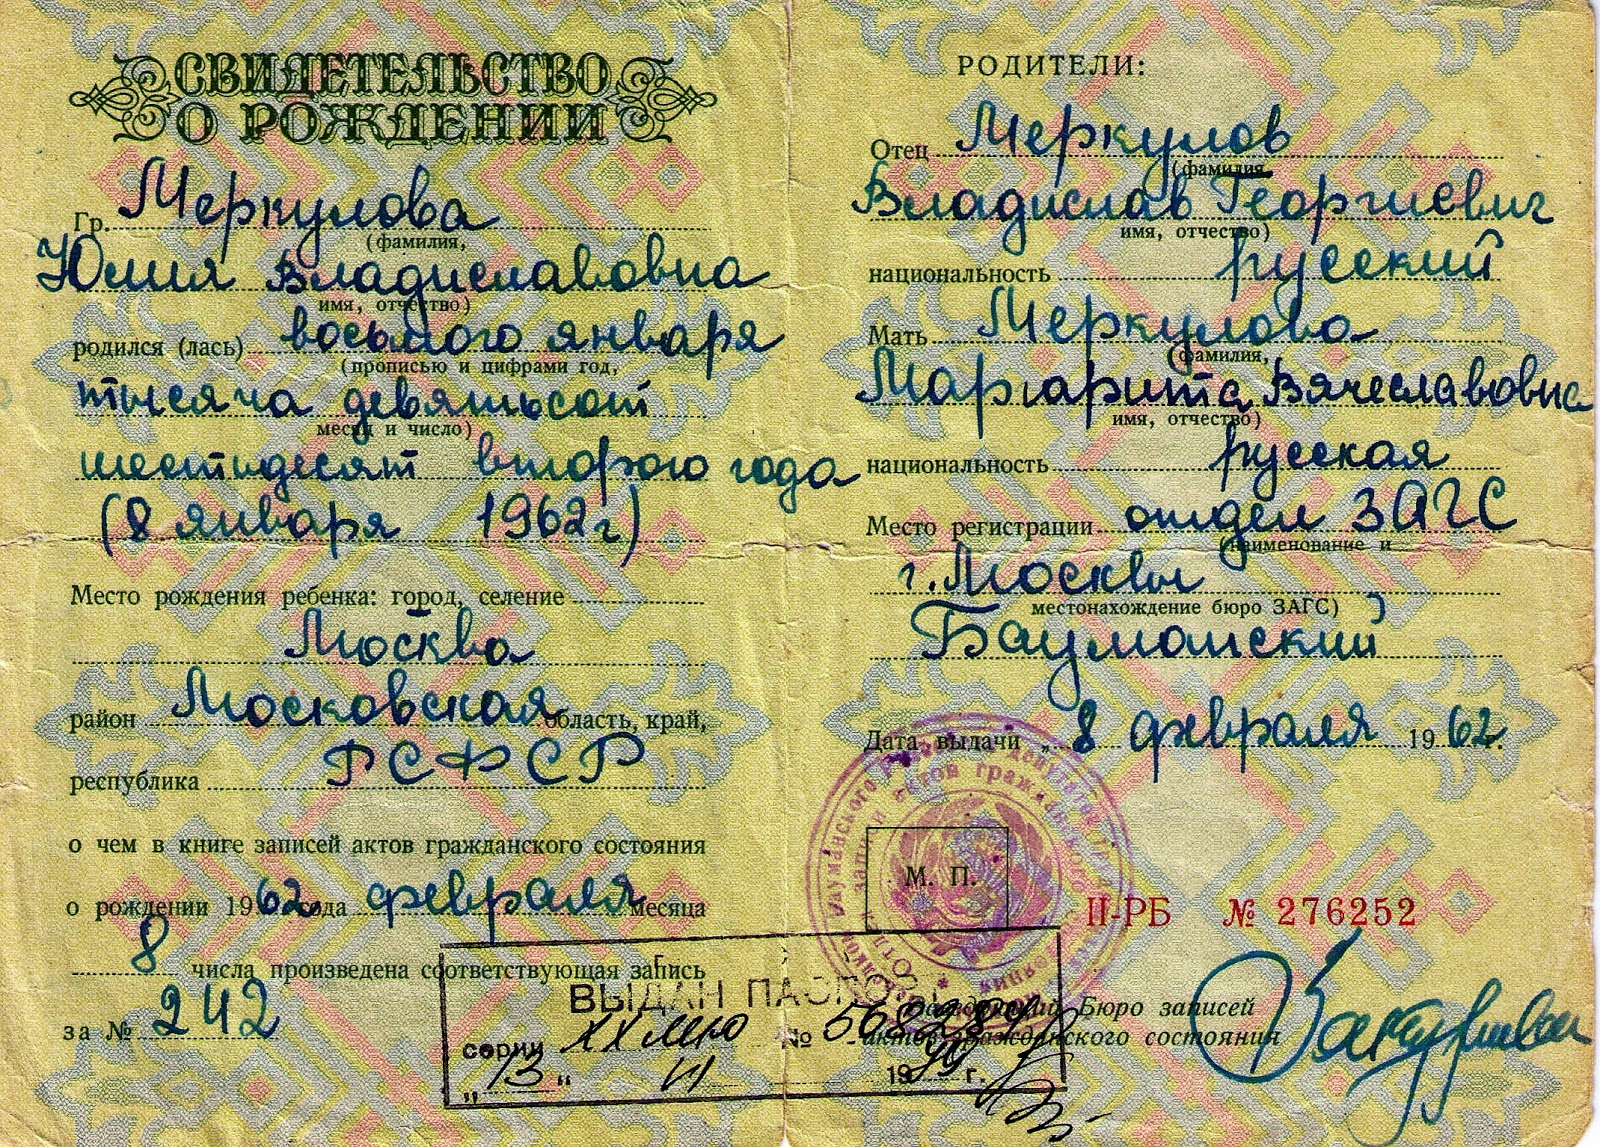 СВИДЕТЕЛЬСТВО
О РОЖДЕНИИ
Гр. Меркулова
(фамилия,
Юлия Владиславовна
имя, отчество)
родился (лась) восьмого января
(прописью и цифрами год,
тысяча девятьсот
месяц и число)
шестьдесят второго года
(8 января 1962г)
Место рождения ребенка: город, селение
Москва
район Московская область, край,
республика РСФСР
о чем в книге записей актов гражданского состояния
о рождении 1962 года февраля месяца
8 числа произведена соответствующая запись
за № 242
РОДИТЕЛИ:
Отец Меркулов
(фамилия,
Владислав Георгиевич
имя, отчество)
национальность русский
Мать Меркулова
(фамилия,
Маргарита Вячеславовна
имя, отчество)
национальность русская
Место регистрации отдел ЗАГС
(наименование и
г. Москвы
местонахождение бюро ЗАГС)
Бауманский
Дата выдачи „ 8 февраля 1962 г.
М. П.
II-РБ № 276252
Заведующий Бюро записей
актов гражданского состояния
ВЫДАН ПАСПОРТ
серии XX №
„13“ 19 г.